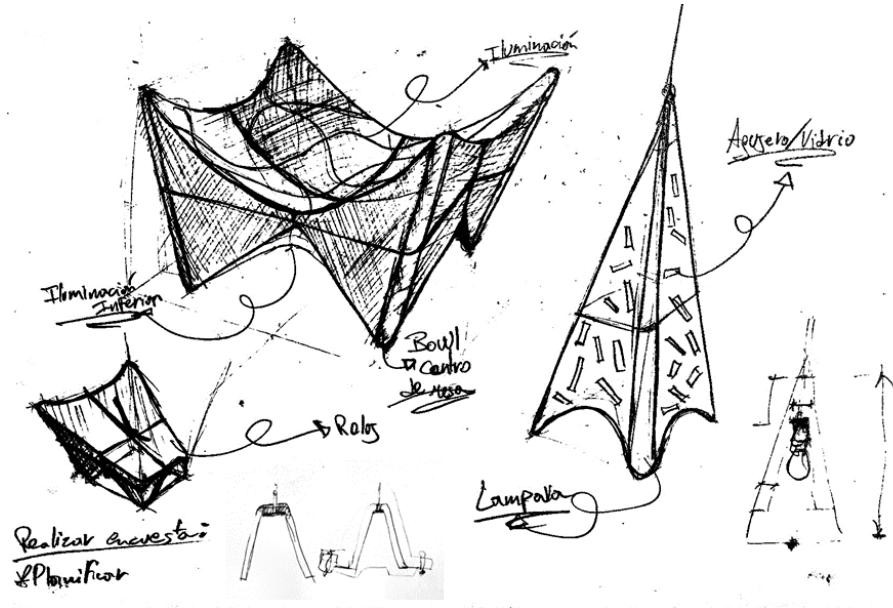 Iluminación
Agujero/Vidrio
Iluminación
Inferior
Bowl
Centro
de mesa
Reloj
Lampara
Realizar encuesta:
*Planificar